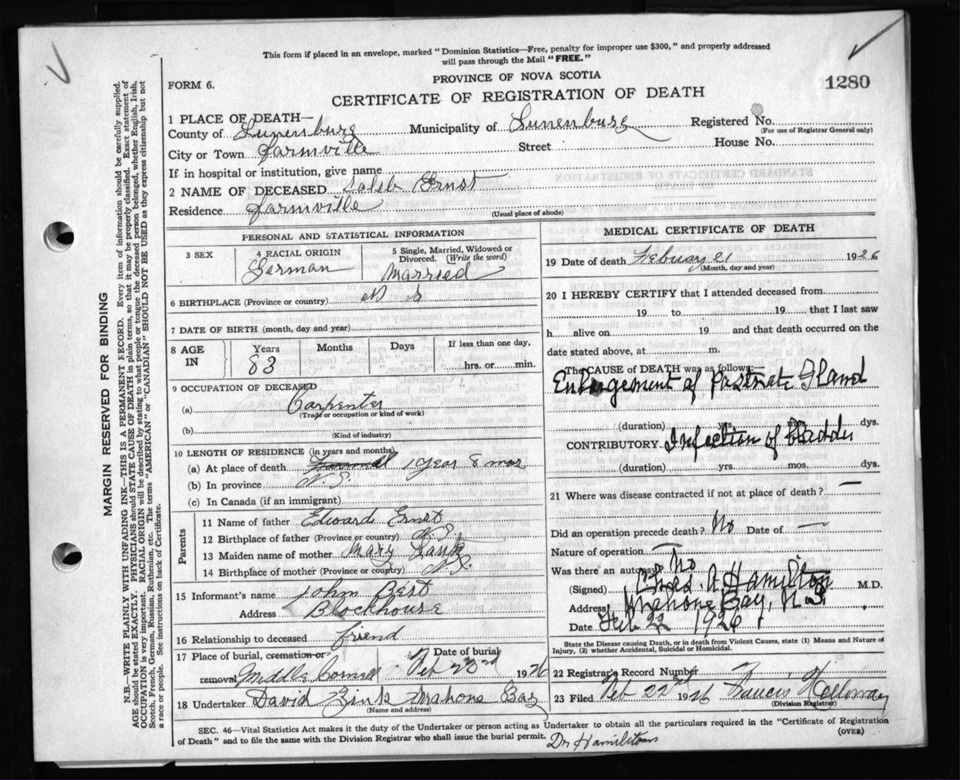 This form if placed in an envelope, marked "Dominion Statistics—Free, penalty for improper use $300," and properly addressed
will pass through the Mail "FREE."
PROVINCE OF NOVA SCOTIA
FORM 6.
1280
CERTIFICATE OF REGISTRATION OF DEATH
1 PLACE OF DEATH—
County of Lunenburg Municipality of Lunenburg Registered No.
(For use of Registrar General only)
City or Town Farmville Street House No.
If in hospital or institution, give name
2 NAME OF DECEASED Caleb Ernst
Residence Farmville
(Usual place of abode)
PERSONAL AND STATISTICAL INFORMATION
3 SEX
4 RACIAL ORIGIN
German
5 Single, Married, Widowed or
Divorced. (Write the word)
Married
6 BIRTHPLACE (Province or country) N S
7 DATE OF BIRTH (month, day and year)
8 AGE IN
Years Months Days If less than one day,
83 hrs. or min.
9 OCCUPATION OF DECEASED
(a) Carpenter
(Trade or occupation or kind of work)
(b)
(Kind of industry)
10 LENGTH OF RESIDENCE (in years and months)
(a) At place of death 1 year 8 mos
(b) In province N. S.
(c) In Canada (if an immigrant)
Parents
11 Name of father Edward Ernst
12 Birthplace of father (Province or country) N. S.
13 Maiden name of mother Mary
14 Birthplace of mother (Province or country) N. S.
15 Informant's name John Best
Address Blockhouse
16 Relationship to deceased friend
17 Place of burial, cremation or removal Middle Cornwall Date of burial Feb 23rd 1926
18 Undertaker David Zink Mahone Bay
(Name and address)
MEDICAL CERTIFICATE OF DEATH
19 Date of death Febuary 21 1926
(Month, day and year)
20 I HEREBY CERTIFY that I attended deceased from
19 to 19 that I last saw
h alive on 19 and that death occurred on the
date stated above, at m.
The CAUSE OF DEATH was as follows:
Enlargement of Prostrate Gland
(duration) yrs. mos. dys.
CONTRIBUTORY. Infection of bladder
(duration) yrs. mos. dys.
21 Where was disease contracted if not at place of death? —
Did an operation precede death? No Date of —
Nature of operation —
Was there an autopsy No
(Signed) Chas. A. Hamilton M.D.
Address Mahone Bay, N S
Date Feb 22 1926
State the Disease causing Death, or in death from Violent Causes, state (1) Means and Nature of
Injury, (2) whether Accidental, Suicidal or Homicidal.
22 Registrar's Record Number 7
23 Filed Feb 22 1926 Francis Holloway
(Division Registrar)
SEC. 46—Vital Statistics Act makes it the duty of the Undertaker or person acting as Undertaker to obtain all the particulars required in the "Certificate of Registration
of Death" and to file the same with the Division Registrar who shall issue the burial permit.
(OVER)
Dr Hamilton
MARGIN RESERVED FOR BINDING
N.B.—WRITE PLAINLY WITH UNFADING INK—THIS IS A PERMANENT RECORD. Every item of information should be carefully supplied.
AGE should be stated EXACTLY. PHYSICIANS should STATE CAUSE OF DEATH in plain terms, so that it may be properly classified. Exact statement of
OCCUPATION is very important. RACIAL ORIGIN will be described by stating to what people or tongue the deceased person belonged, whether English, Irish,
Scotch, French, German, Russian, Ruthenian, etc. The terms "AMERICAN" or "CANADIAN" SHOULD NOT BE USED as they express citizenship but not
a race or people. See instructions on back of Certificate.